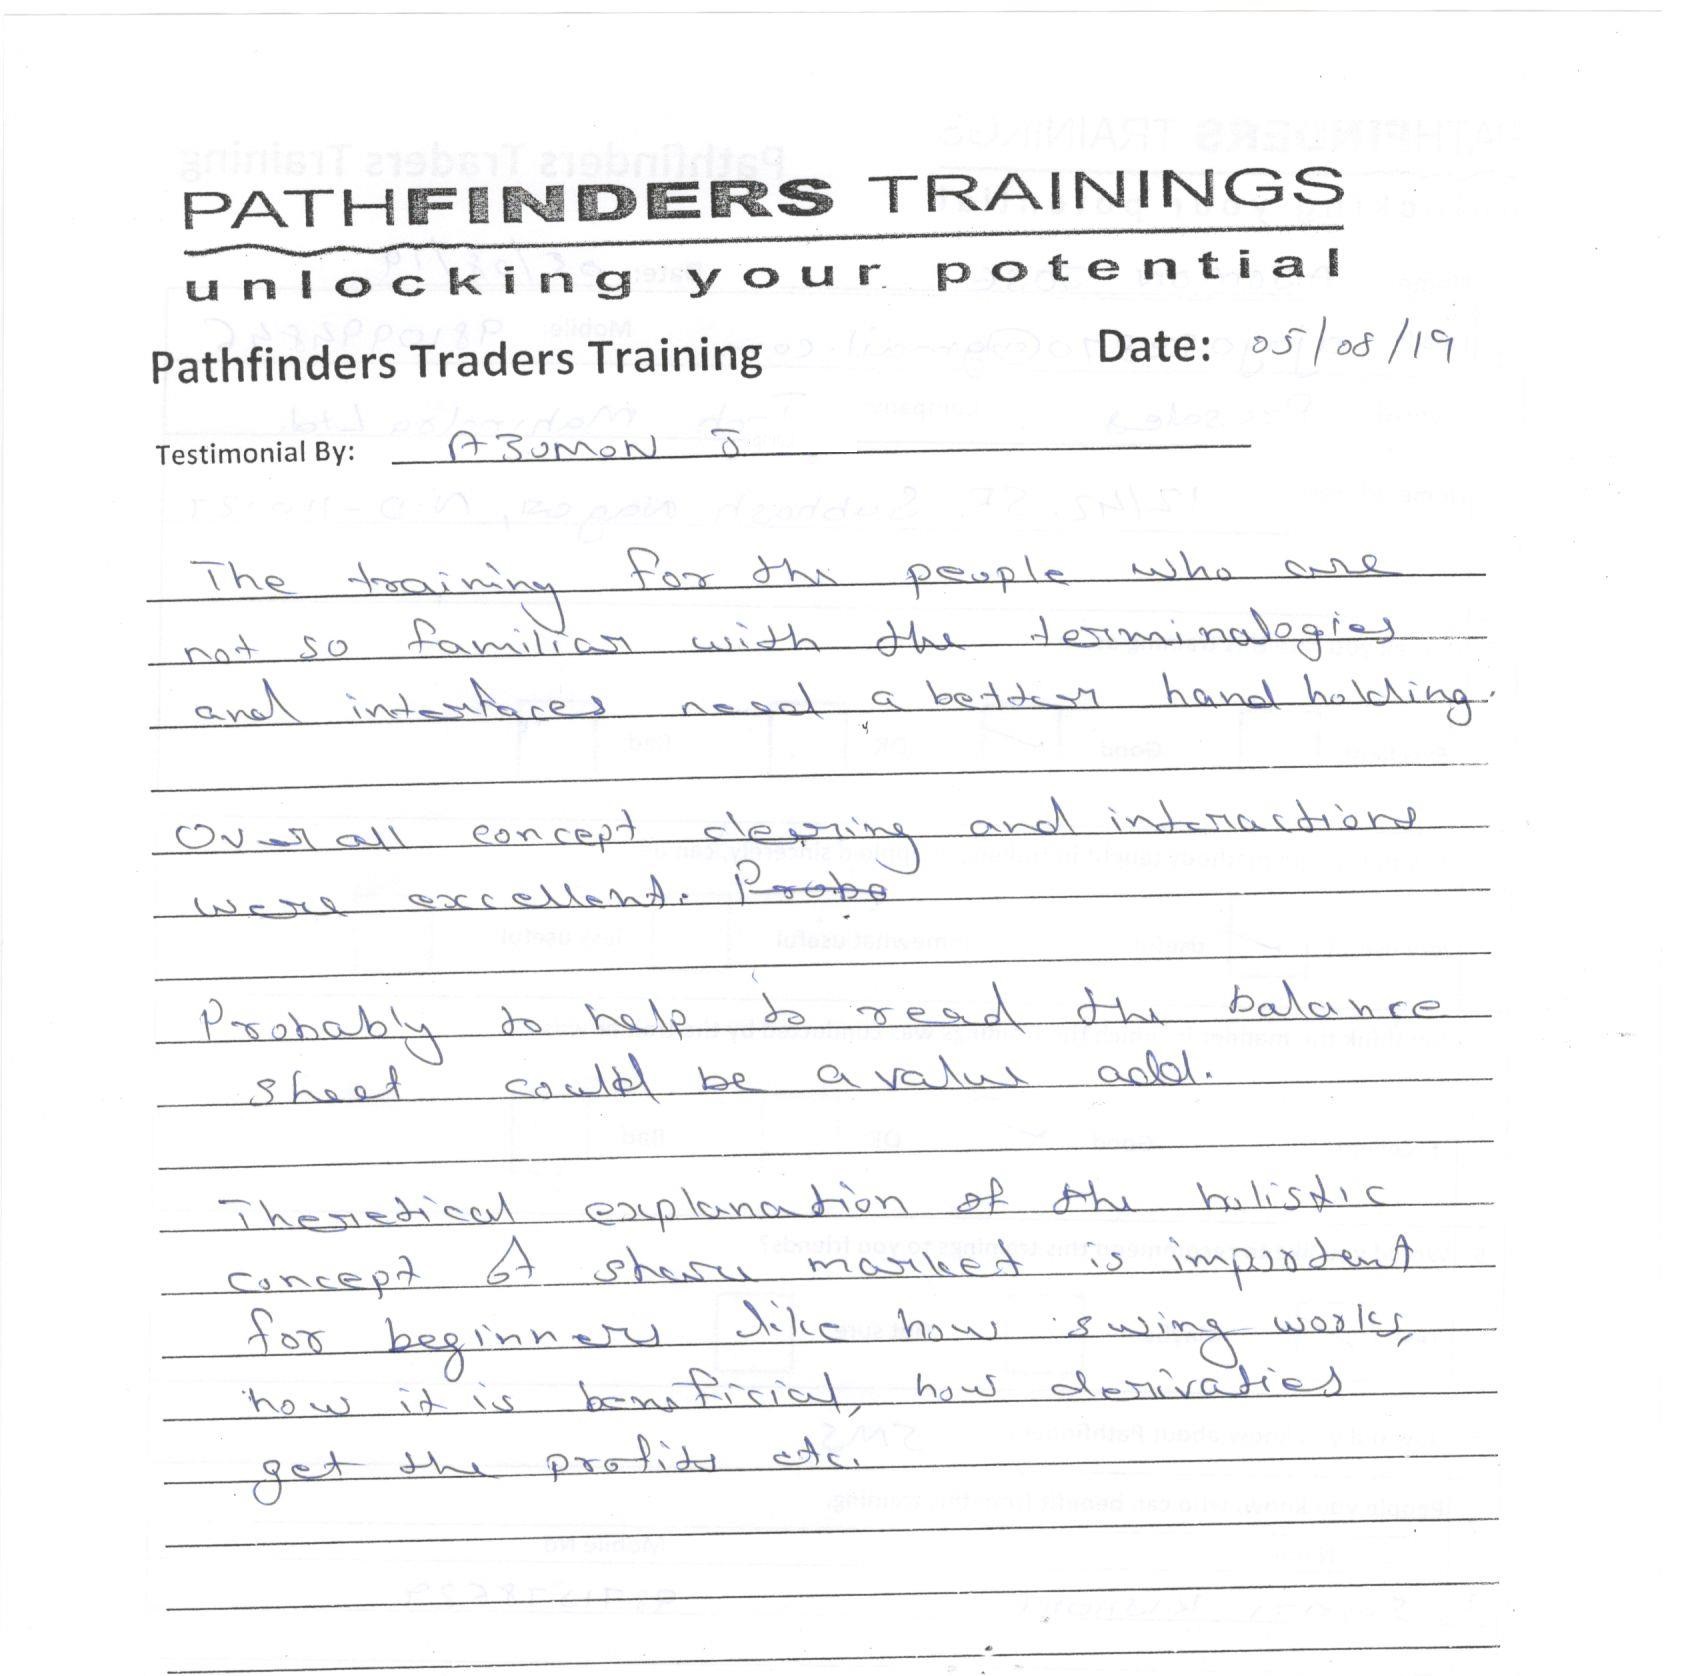 PATHFINDERS TRAININGS
unlocking your potential
Pathfinders Traders Training Date: 05/08/19
Testimonial By: AJOMON J
The training for the people who are
not so familiar with the terminalogies
and interfaces need a better hand holding.
Over all concept clearing and interactions
were excellent. Probo
Probably to help to read the balance
sheet could be a value add.
Theretical explanation of the holistic
concept of share market is important
for beginners like how swing works,
how it is beneficial, how derivaties
get the profits etc.